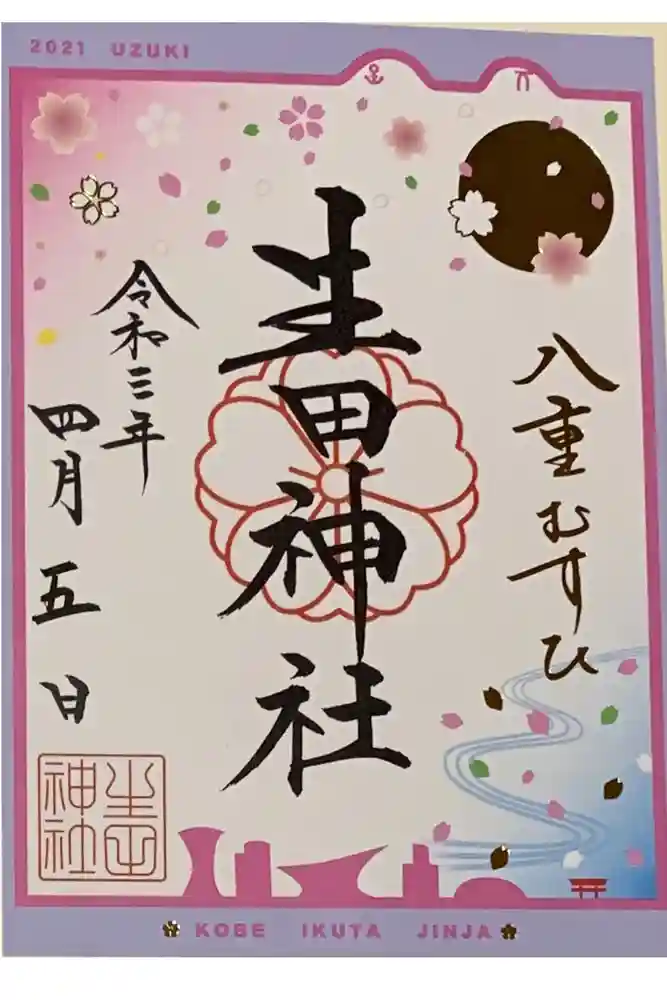 2021 UZUKI
八重むすひ
生田神社
令和三年
四月五日
生田神社
KOBE IKUTA JINJA